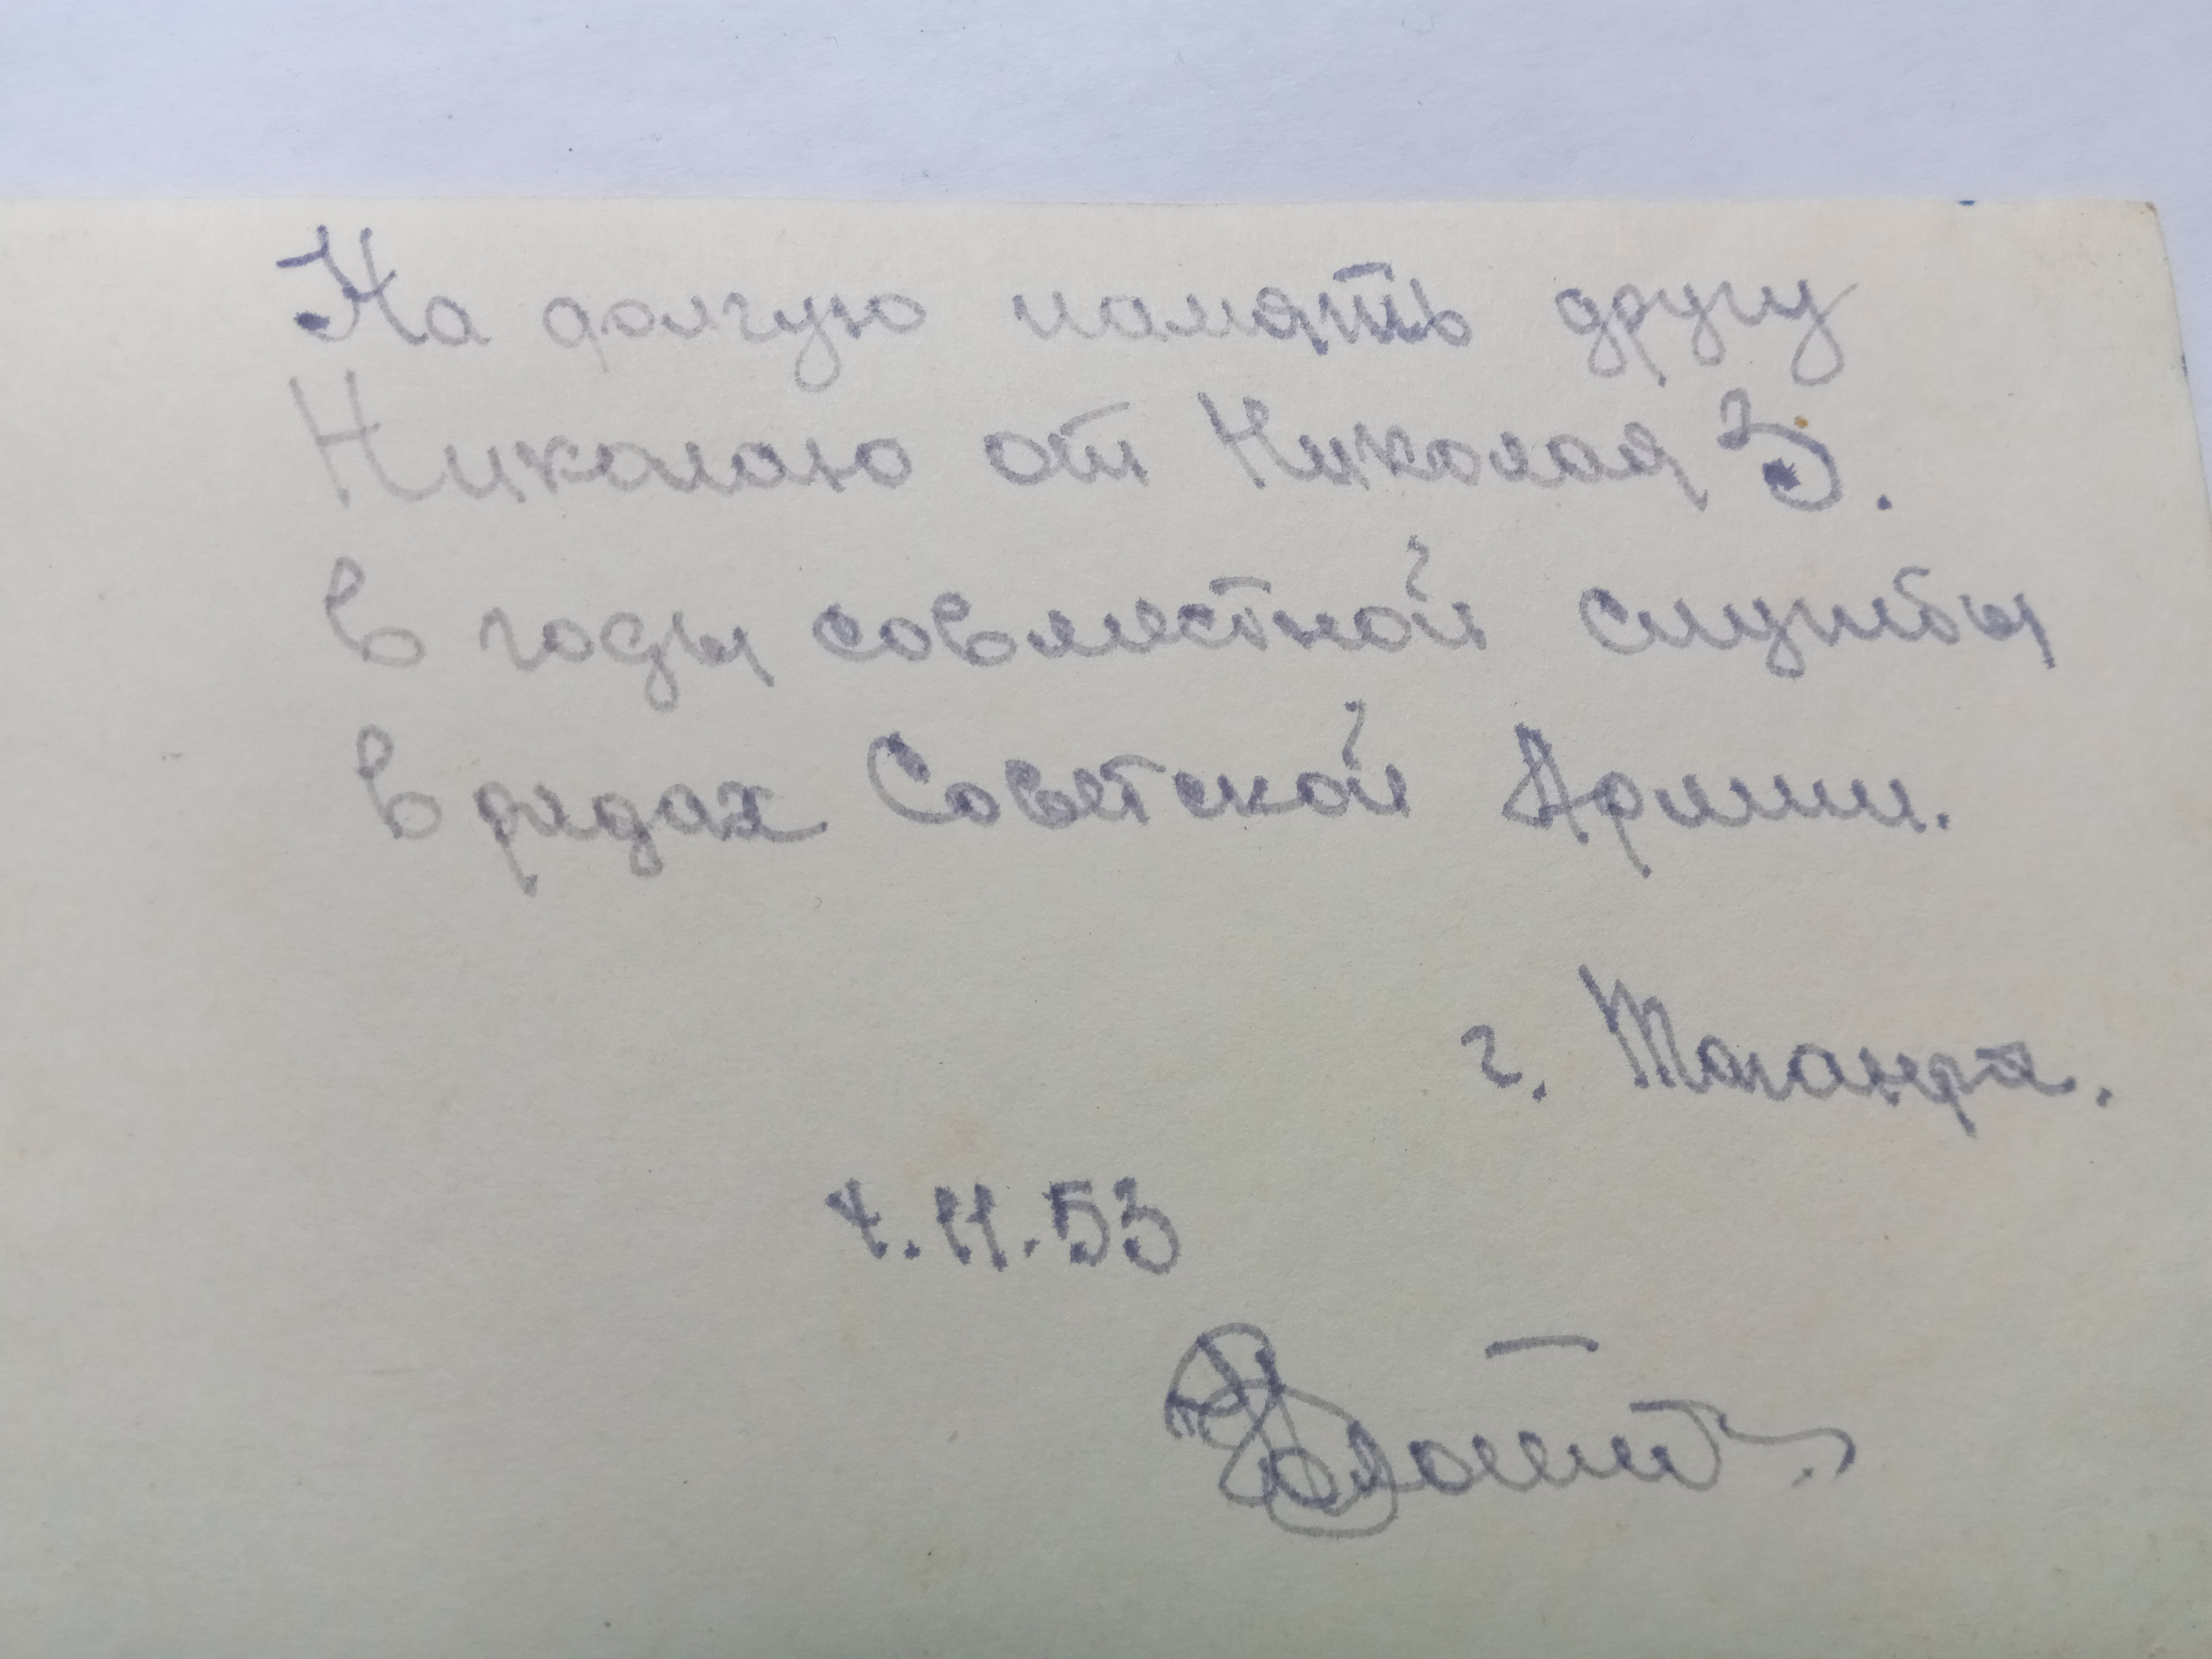 На долгую память другу
Николаю от Николая З.
в годы совместной службы
в рядах Советской Армии.
г.
7.11.53